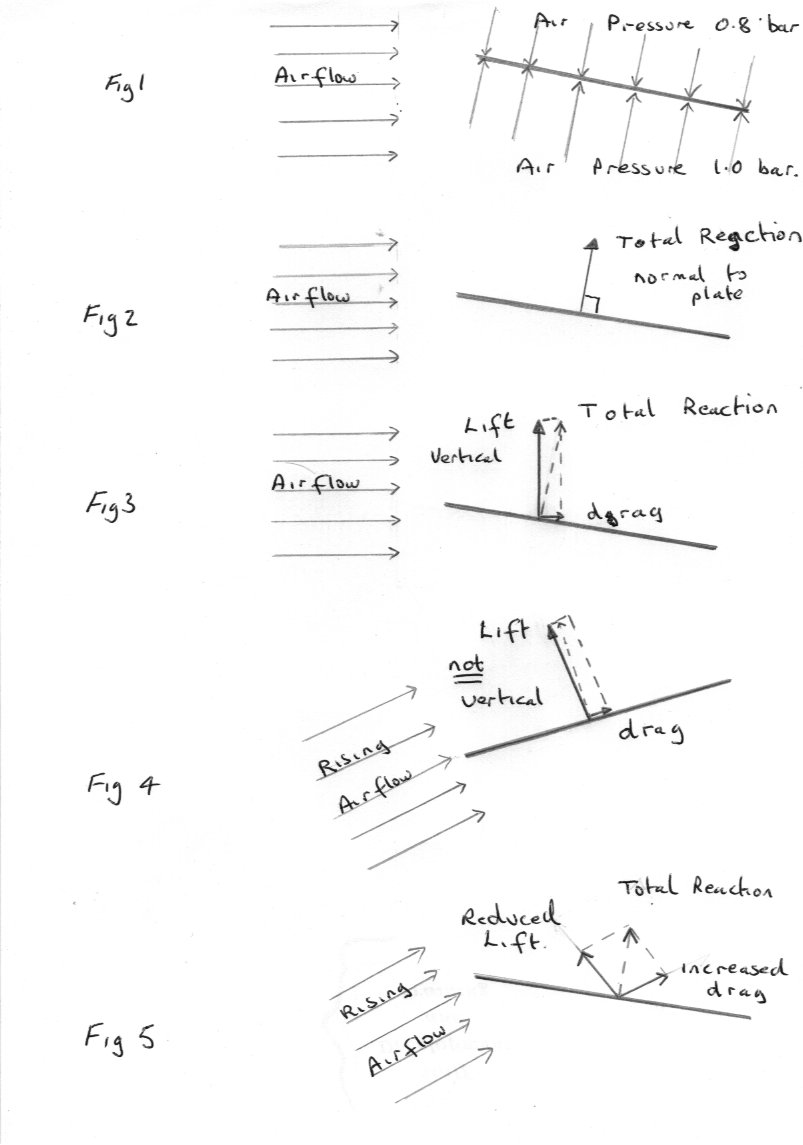 Fig 1
Airflow
Air Pressure 0.8 bar
Air Pressure 1.0 bar.
Fig 2
Airflow
Total Reaction
normal to
plate
Fig 3
Airflow
Lift
Vertical
Total Reaction
drag
Fig 4
Rising
Airflow
Lift
not
vertical
drag
Fig 5
Rising
Airflow
Reduced
Lift.
Total Reaction
increased
drag